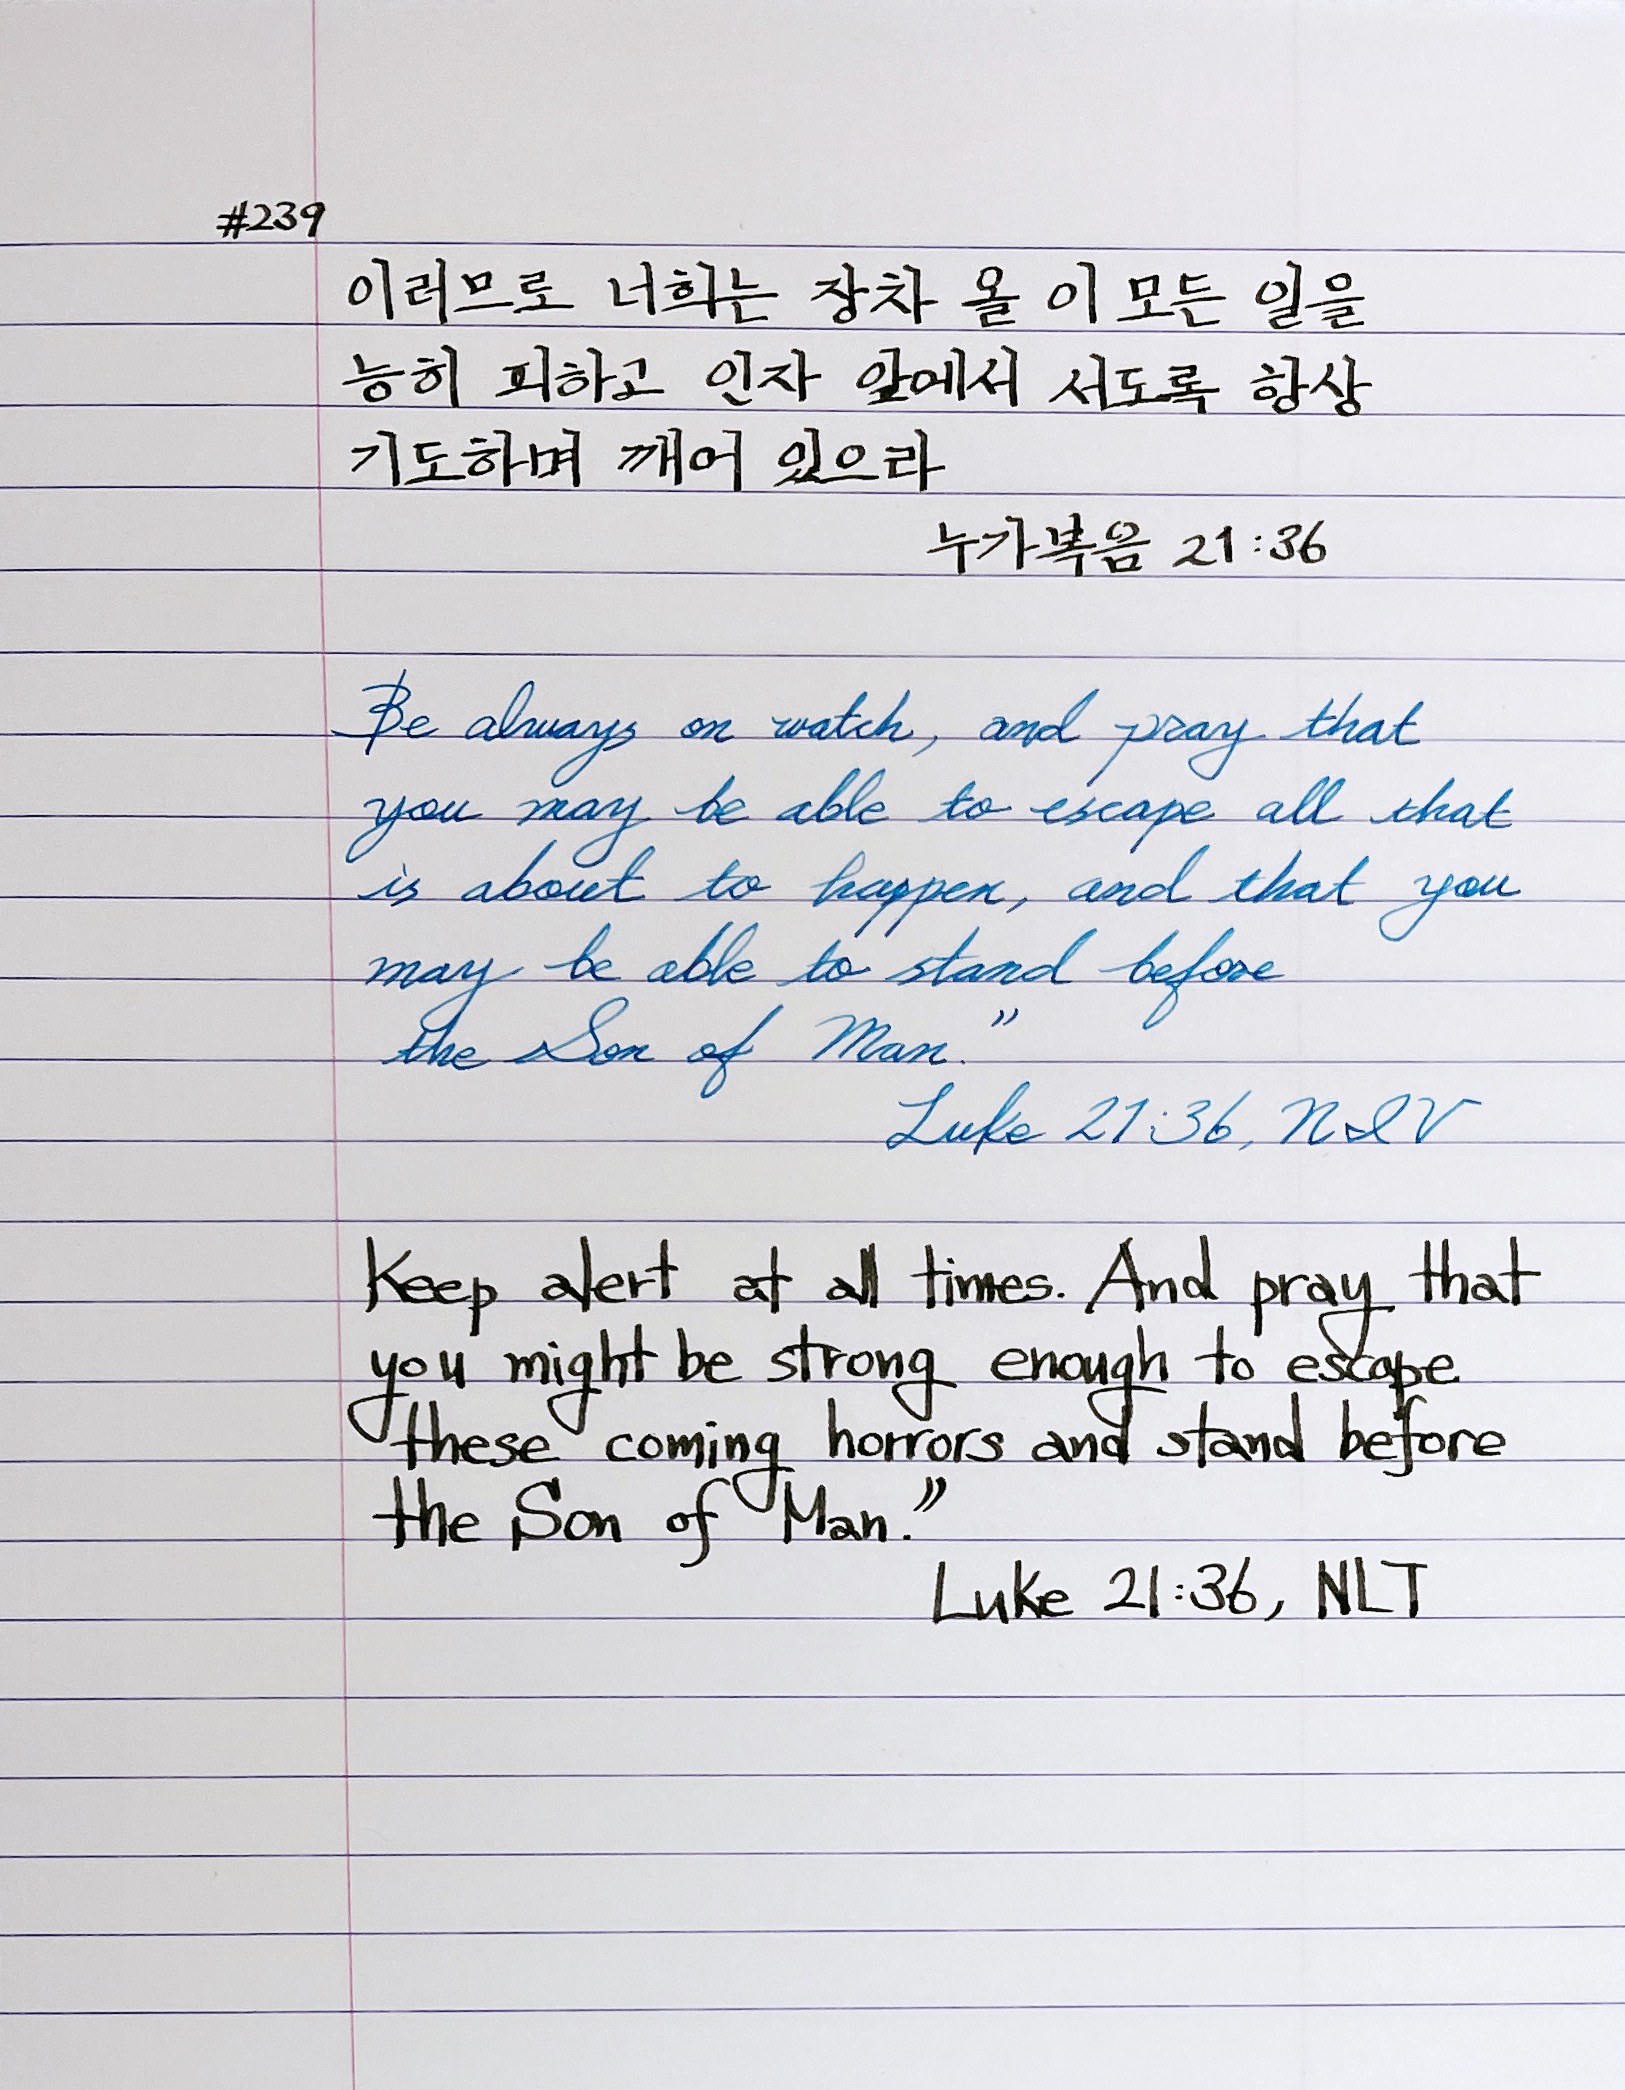 #239
이러므로 너희는 장차 올 이 모든 일을
능히 피하고 인자 앞에서 서도록 항상
기도하며 깨어 있으라
누가복음 21:36
Be always on watch, and pray that
you may be able to escape all that
is about to happen, and that you
may be able to stand before
the Son of Man."
Luke 21:36, NIV
Keep alert at all times. And pray that
you might be strong enough to escape
these coming horrors and stand before
the Son of Man."
Luke 21:36, NLT